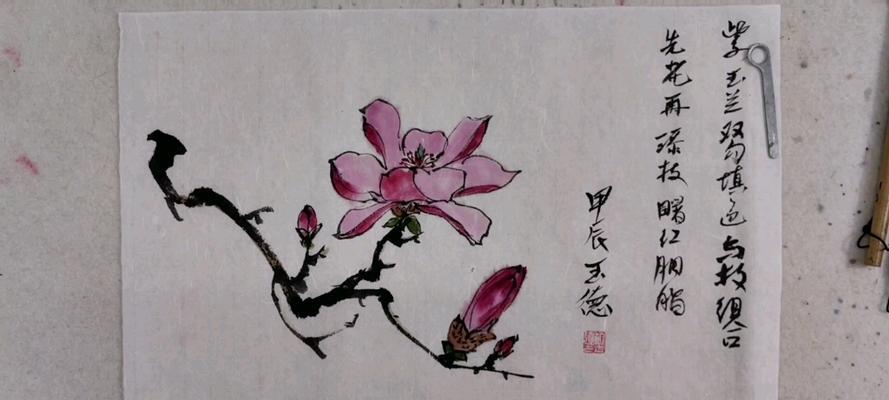 紫玉兰双勾填色与枝组合
先花再添枝曙红胭脂
甲辰玉德